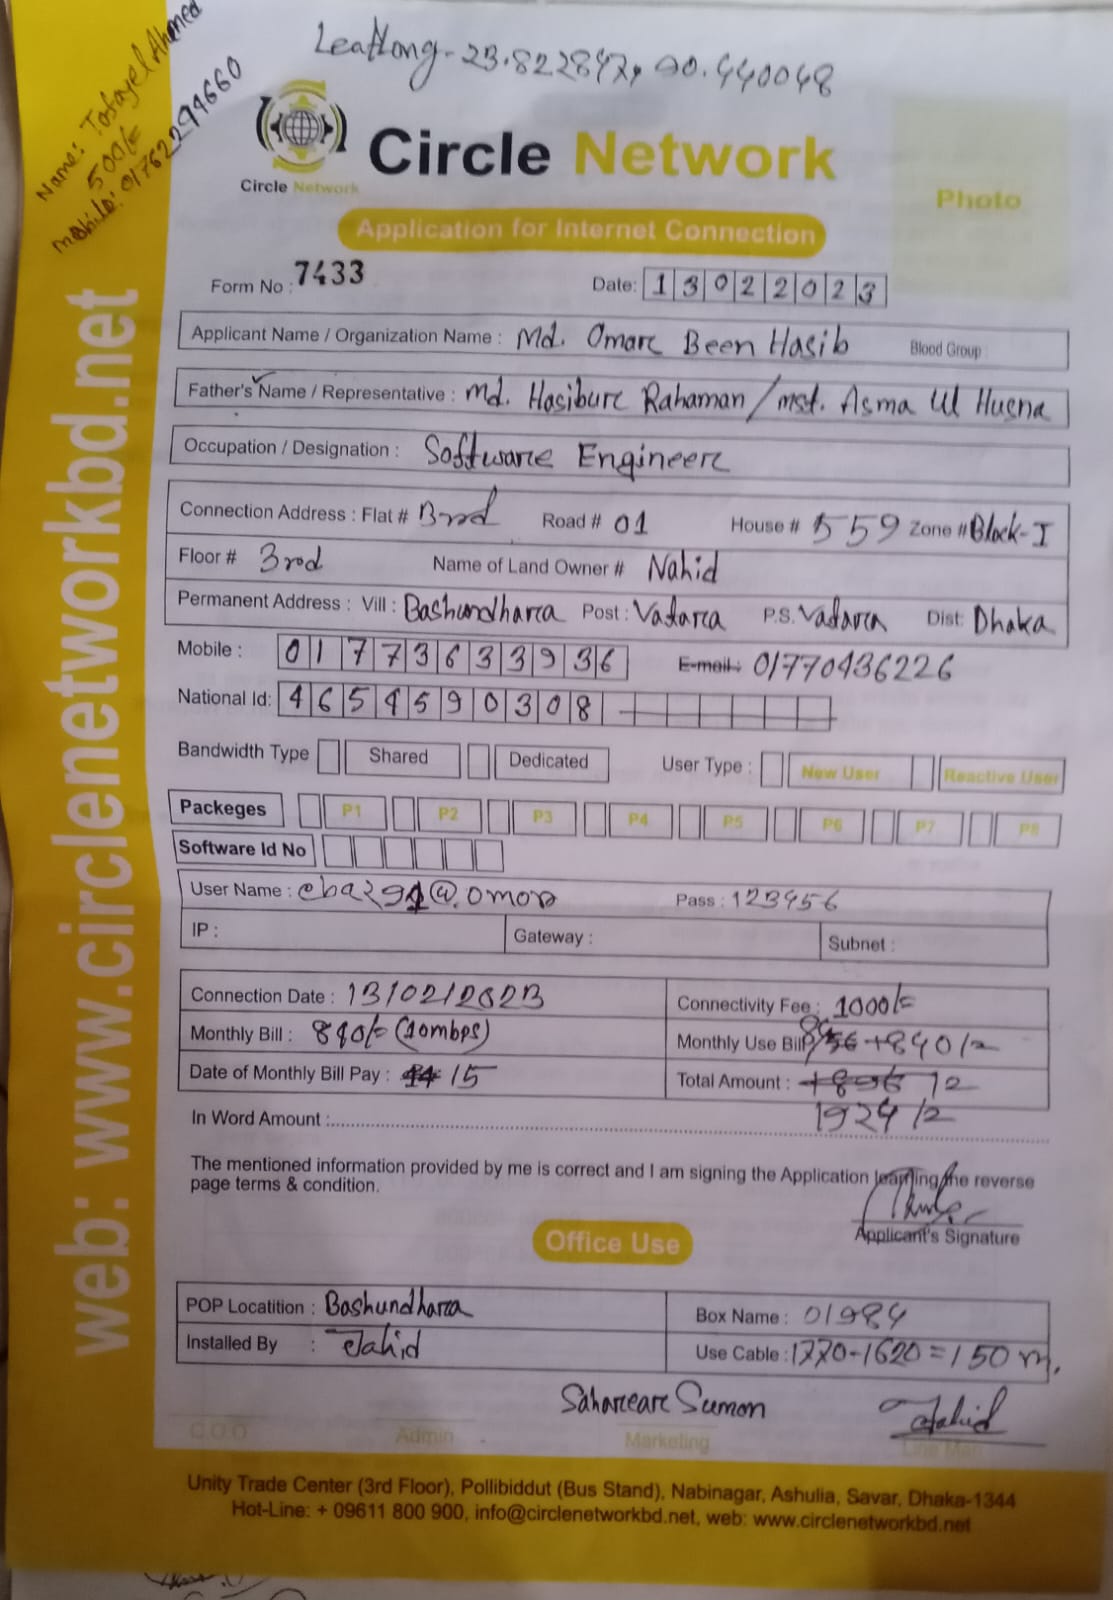 Leatlong - 23.822847, 90.440048
Name: Tofayel Ahmed
500/=
Mobile: 01762294660
Circle Network
Circle Network
Photo
Application for Internet Connection
Form No : 7433
Date: 13022023
Applicant Name / Organization Name : Md. Omar Been Hasib Blood Group :
Father's Name / Representative : Md. Hasibur Rahaman / Mst. Asma Ul Husna
Occupation / Designation : Software Engineer
Connection Address : Flat # 3rd Road # 01 House # 559 Zone # Block-I
Floor # 3rd Name of Land Owner # Nahid
Permanent Address : Vill : Bashundhara Post : Vatara P.S. Vatara Dist: Dhaka
Mobile : 01773633936 E-mail : 01770436226
National Id: 4654590308
Bandwidth Type Shared Dedicated User Type : New User Reactive User
Packeges P1 P2 P3 P4 P5 P6 P7 P8
Software Id No
User Name : cba291@.omor Pass : 123456
IP : Gateway : Subnet :
Connection Date : 13/02/2023 Connectivity Fee : 1000/=
Monthly Bill : 840/= (10mbps) Monthly Use Bill +840/=
Date of Monthly Bill Pay : 15 Total Amount :
1924/=
In Word Amount :
The mentioned information provided by me is correct and I am signing the Application learning the reverse
page terms & condition.
Applicant's Signature
Office Use
POP Locatition : Bashundhara Box Name : 01984
Installed By : Jahid Use Cable : 1770-1620=150 m.
Sahareare Sumon Jahid
C O O Admin Marketing Line Man
Unity Trade Center (3rd Floor), Pollibiddut (Bus Stand), Nabinagar, Ashulia, Savar, Dhaka-1344
Hot-Line: + 09611 800 900, info@circlenetworkbd.net, web: www.circlenetworkbd.net
web: www.circlenetworkbd.net